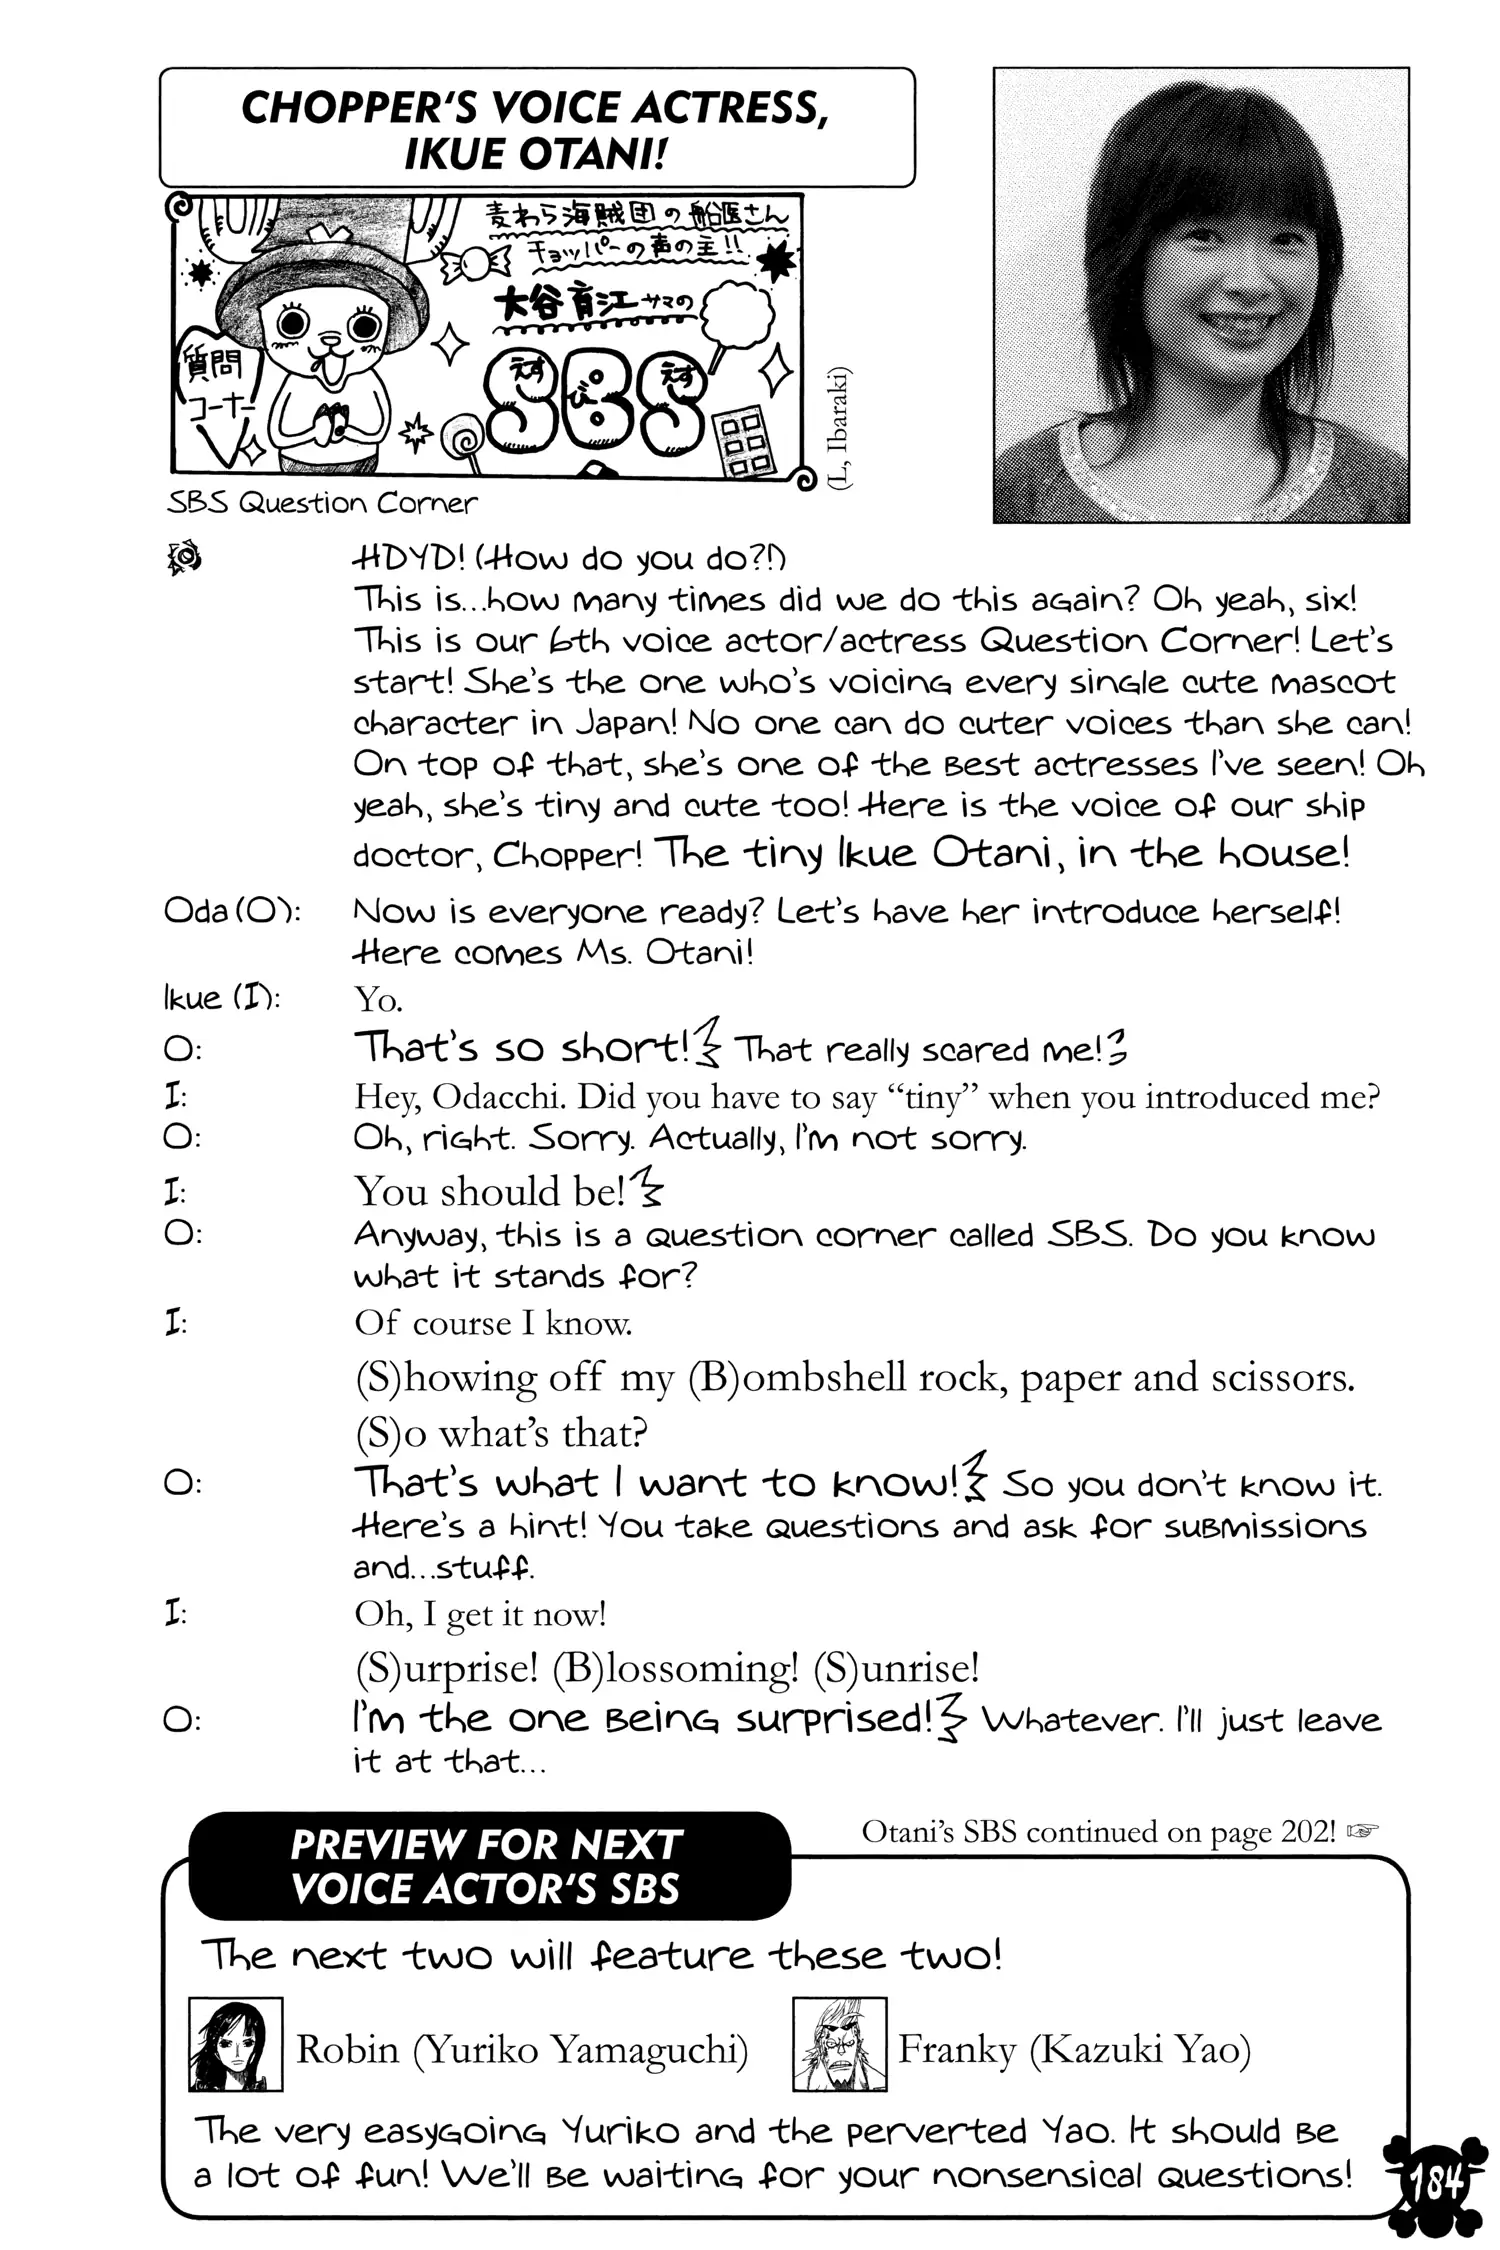 CHOPPER'S VOICE ACTRESS,
IKUE OTANI!
麦わら海賊団の船医さん
チョッパーの声の主!!
大谷育江サマの
質問
コーナー
えす び えす
SBS
(L, Ibaraki)
SBS Question Corner
HDYD! (How do you do?!)
This is...how many times did we do this again? Oh yeah, six!
This is our 6th voice actor/actress Question Corner! Let's
start! She's the one who's voicing every single cute mascot
character in Japan! No one can do cuter voices than she can!
On top of that, she's one of the best actresses I've seen! Oh
yeah, she's tiny and cute too! Here is the voice of our ship
doctor, Chopper! The tiny Ikue Otani, in the house!
Oda (O): Now is everyone ready? Let's have her introduce herself!
Here comes Ms. Otani!
Ikue (I): Yo.
O: That's so short! That really scared me!
I: Hey, Odacchi. Did you have to say “tiny” when you introduced me?
O: Oh, right. Sorry. Actually, I'm not sorry.
I: You should be!
O: Anyway, this is a question corner called SBS. Do you know
what it stands for?
I: Of course I know.
(S)howing off my (B)ombshell rock, paper and scissors.
(S)o what's that?
O: That's what I want to know! So you don't know it.
Here's a hint! You take questions and ask for submissions
and...stuff.
I: Oh, I get it now!
(S)urprise! (B)lossoming! (S)unrise!
O: I'm the one being surprised! Whatever. I'll just leave
it at that...
Otani's SBS continued on page 202! ☞
PREVIEW FOR NEXT
VOICE ACTOR'S SBS
The next two will feature these two!
Robin (Yuriko Yamaguchi) Franky (Kazuki Yao)
The very easygoing Yuriko and the perverted Yao. It should be
a lot of fun! We'll be waiting for your nonsensical questions!
184